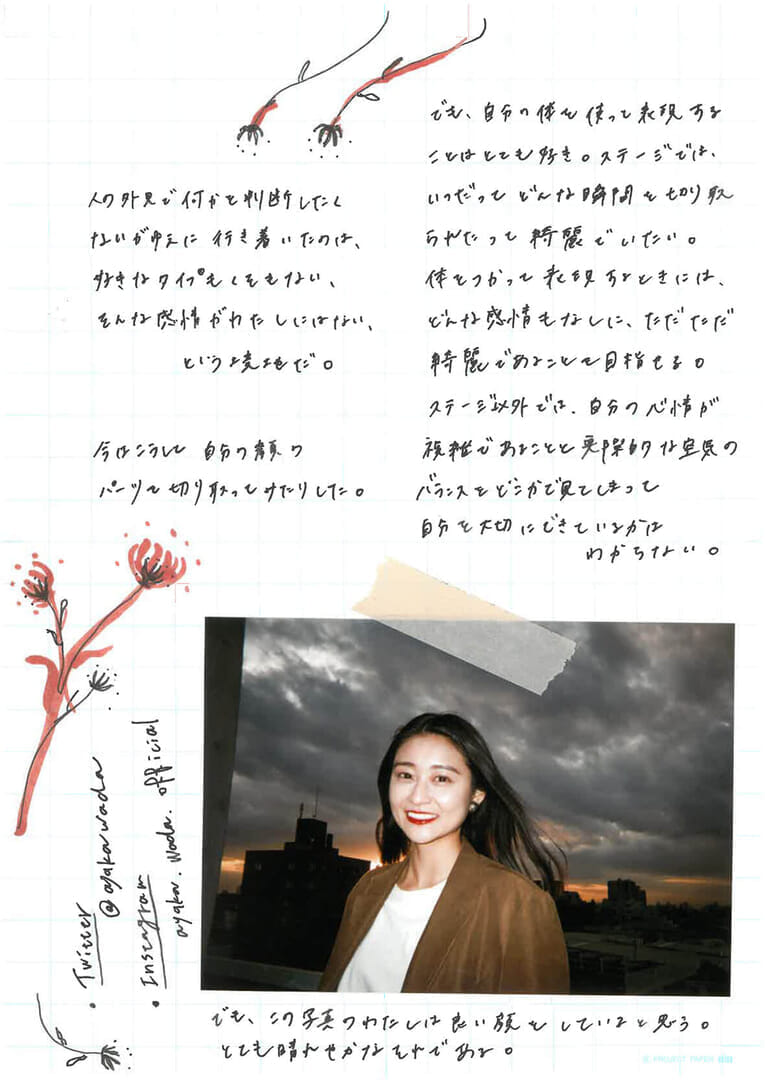 人の外見で何かを判断したく
ないがゆえに行き着いたのは、
好きなタイプもくそもない、
そんな感情がわたしにはない、
という境地だ。
今はこうして自分の顔の
パーツを切り取ってみたりした。
でも、自分の体を使って表現する
ことはとても好き。ステージでは、
いつだってどんな瞬間を切り取
られたって綺麗でいたい。
体をつかって表現するときには、
どんな感情もなしに、ただただ
綺麗であることを目指せる。
ステージ以外では、自分の心情が
複雑であることと実際的な空気の
バランスをどこかで見てしまって
自分を大切にできているかは
わからない。
• Twitter
@ayakawada
• Instagram
ayaka.wada.official
でも、この写真のわたしは良い顔をしていると思う。
とても晴れやかなそれである。
PROJECT PAPER